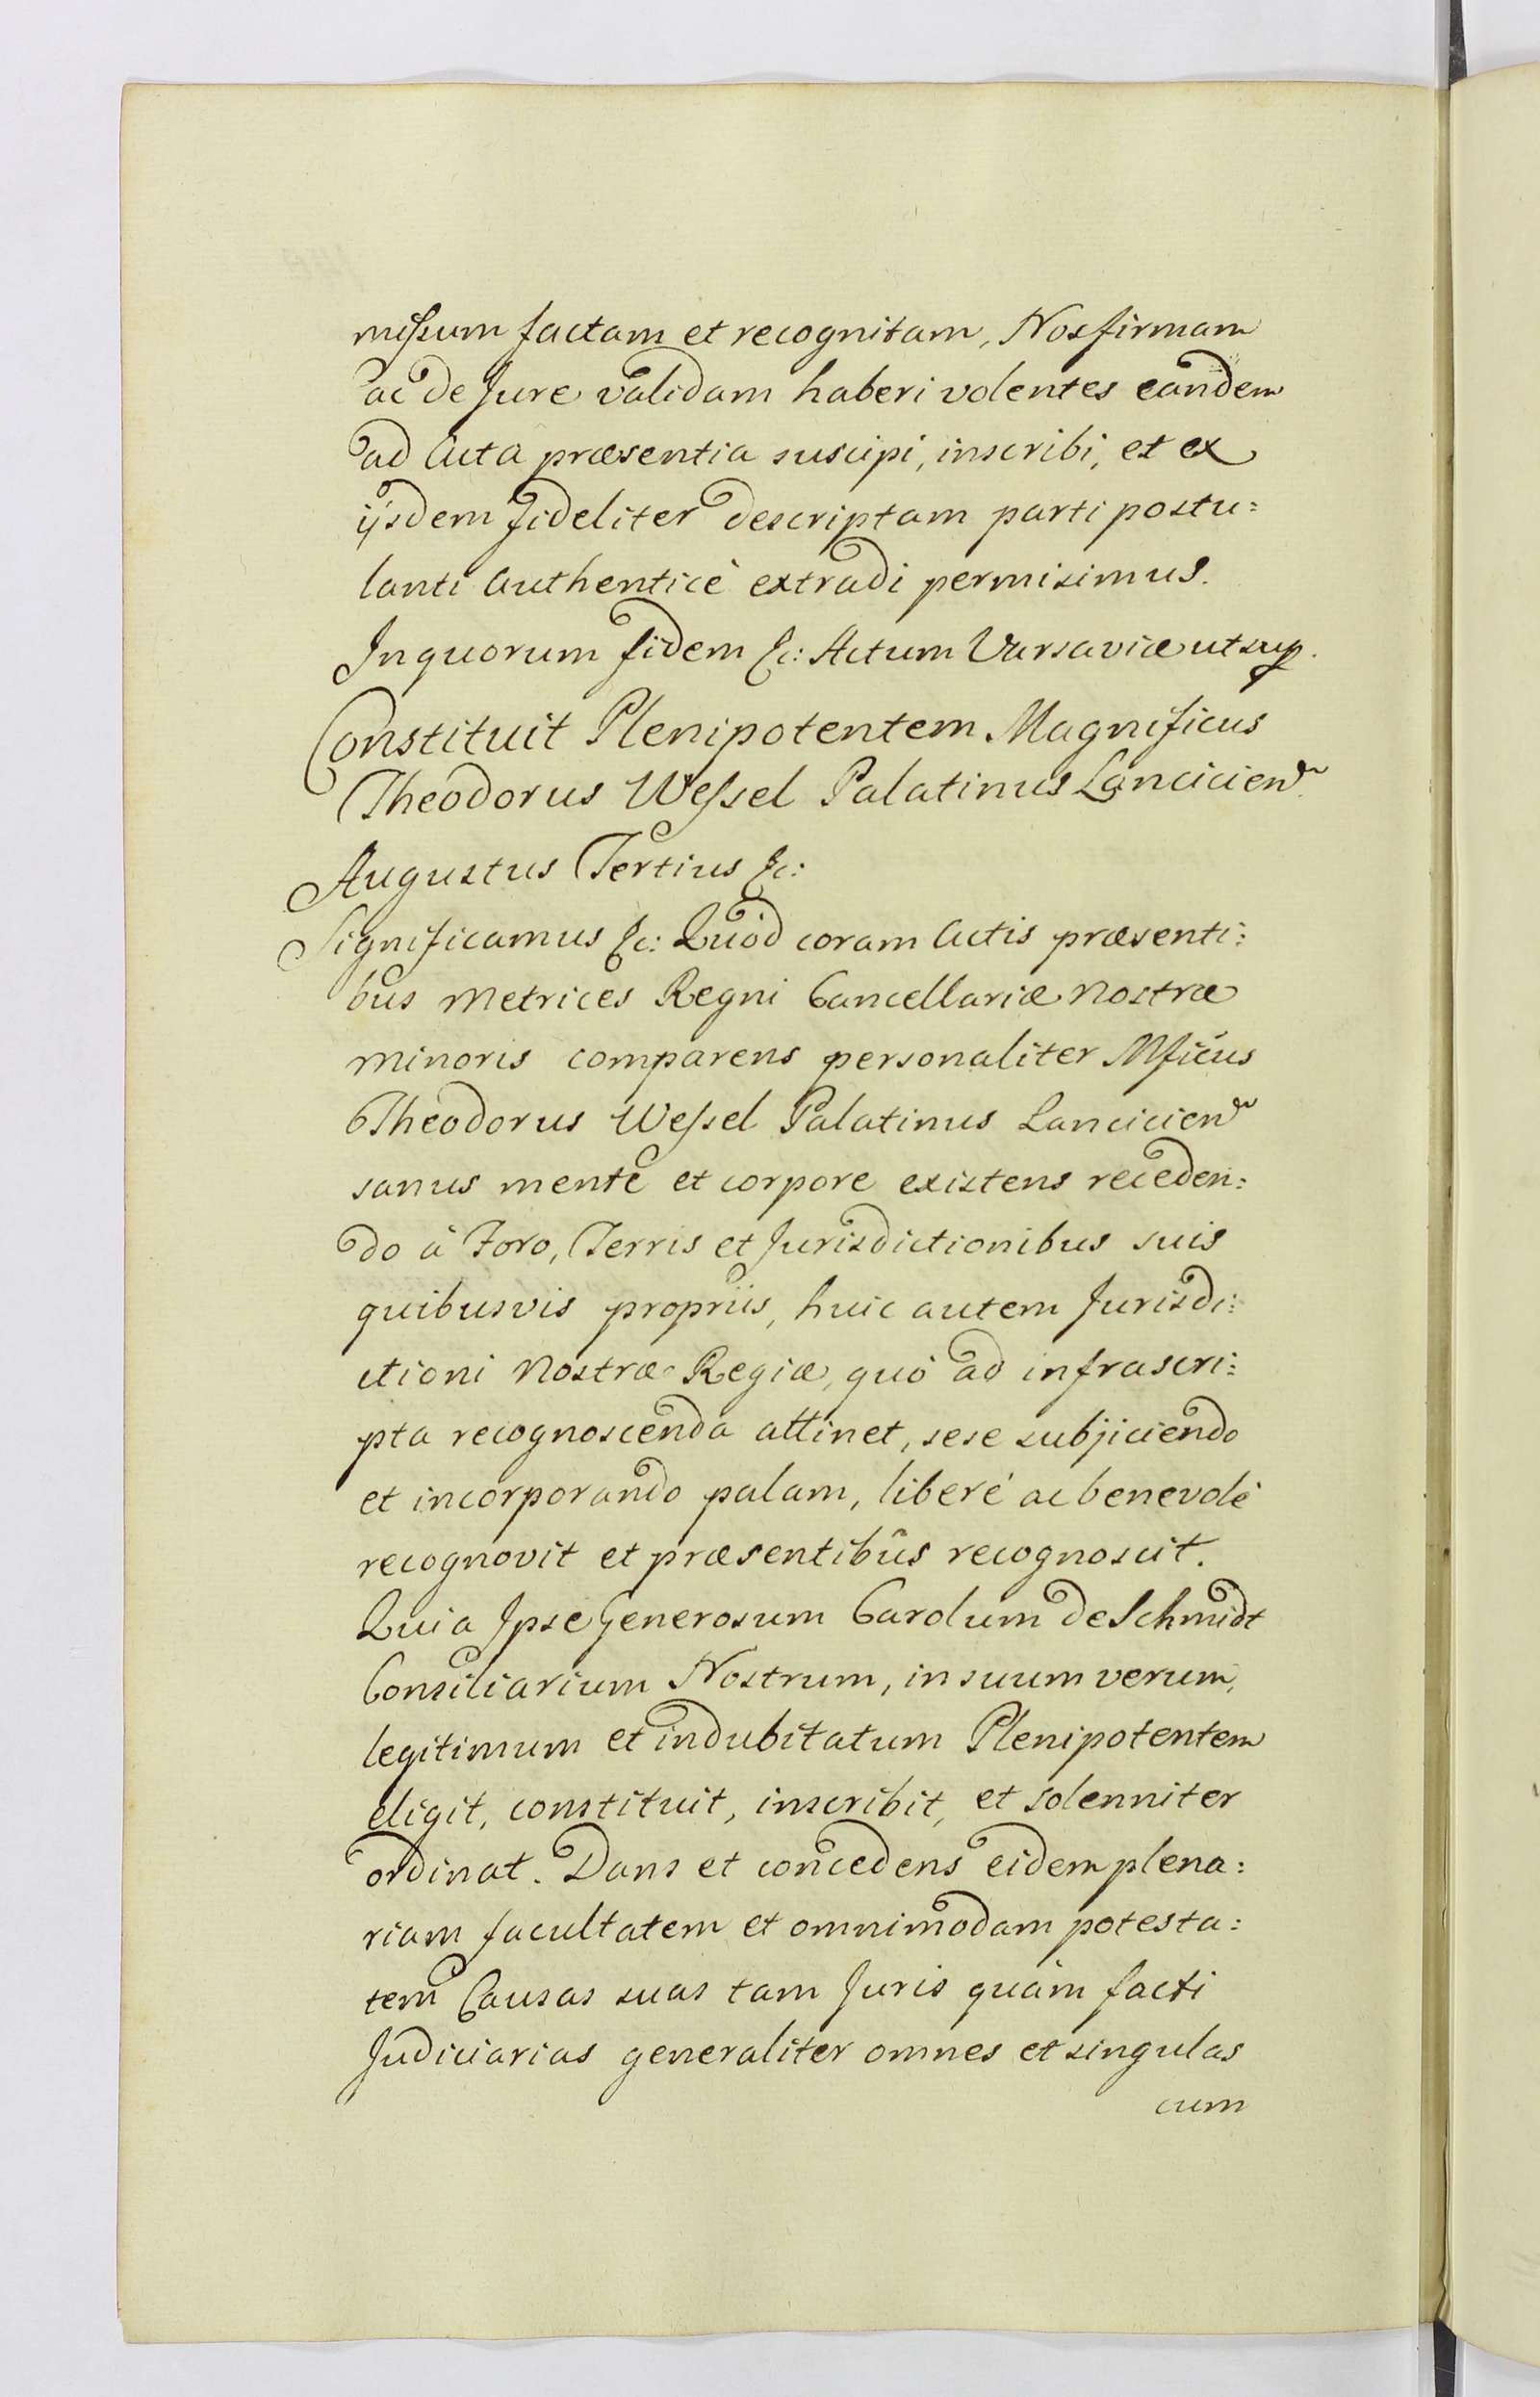 missum factam et recognitam, Nos firmam
ac de Jure validam haberi volentes eandem
ad Acta præsentia suscipi, inscribi, et ex
ijsdem fideliter descriptam parti postu:
lanti authenticè extradi permisimus.
In quorum fidem &c: Actum Varsaviæ ut sup.
Constituit Plenipotentem Magnificus
Theodorus Wessel Palatinus Lancicien
Augustus Tertius &c:
Significamus &c: Quòd coram Actis præsenti:
bus Metrices Regni Cancellariæ Nostræ
minoris comparens personaliter Mficus
Theodorus Wessel Palatinus Lancicien
sanus mente et corpore existens receden:
do à Foro, Terris et Jurisdictionibus suis
quibusvis propriis, huic autem Jurisdi:
ctioni Nostræ Regiæ, quò ad infrascri:
pta recognoscenda attinet, sese subjiciendo
et incorporando palam, liberè ac benevolè
recognovit et præsentibûs recognoscit.
Quia Ipse Generosum Carolum de Schmidt
Consiliarium Nostrum, in suum verum,
legitimum et indubitatum Plenipotentem
eligit, constituit, inscribit, et solenniter
ordinat. Dans et concedens eidem plena:
riam facultatem et omnimodam potesta:
tem Causas suas tam Juris quàm facti
Judiciarias generaliter omnes et singulas
cum